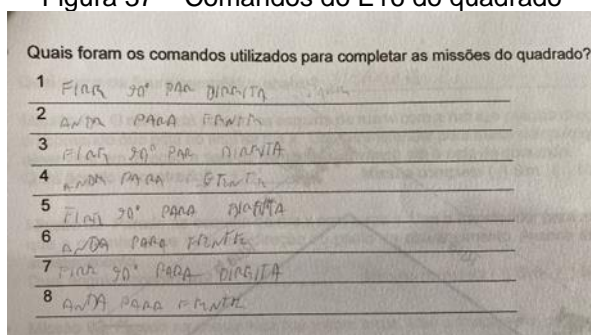 Figura 37 – Comandos do E16 do quadrado
Quais foram os comandos utilizados para completar as missões do quadrado?
1 FIRR 90° PAR DIREITA
2 ANDA PARA FRNTE
3 FIRR 90° PAR DIREITA
4 ANDA PARA FRNTE
5 FIRR 90° PARA DIREITA
6 ANDA PARA FRENTE
7 FIRR 90° PARA DIREITA
8 ANDA PARA FRENTE